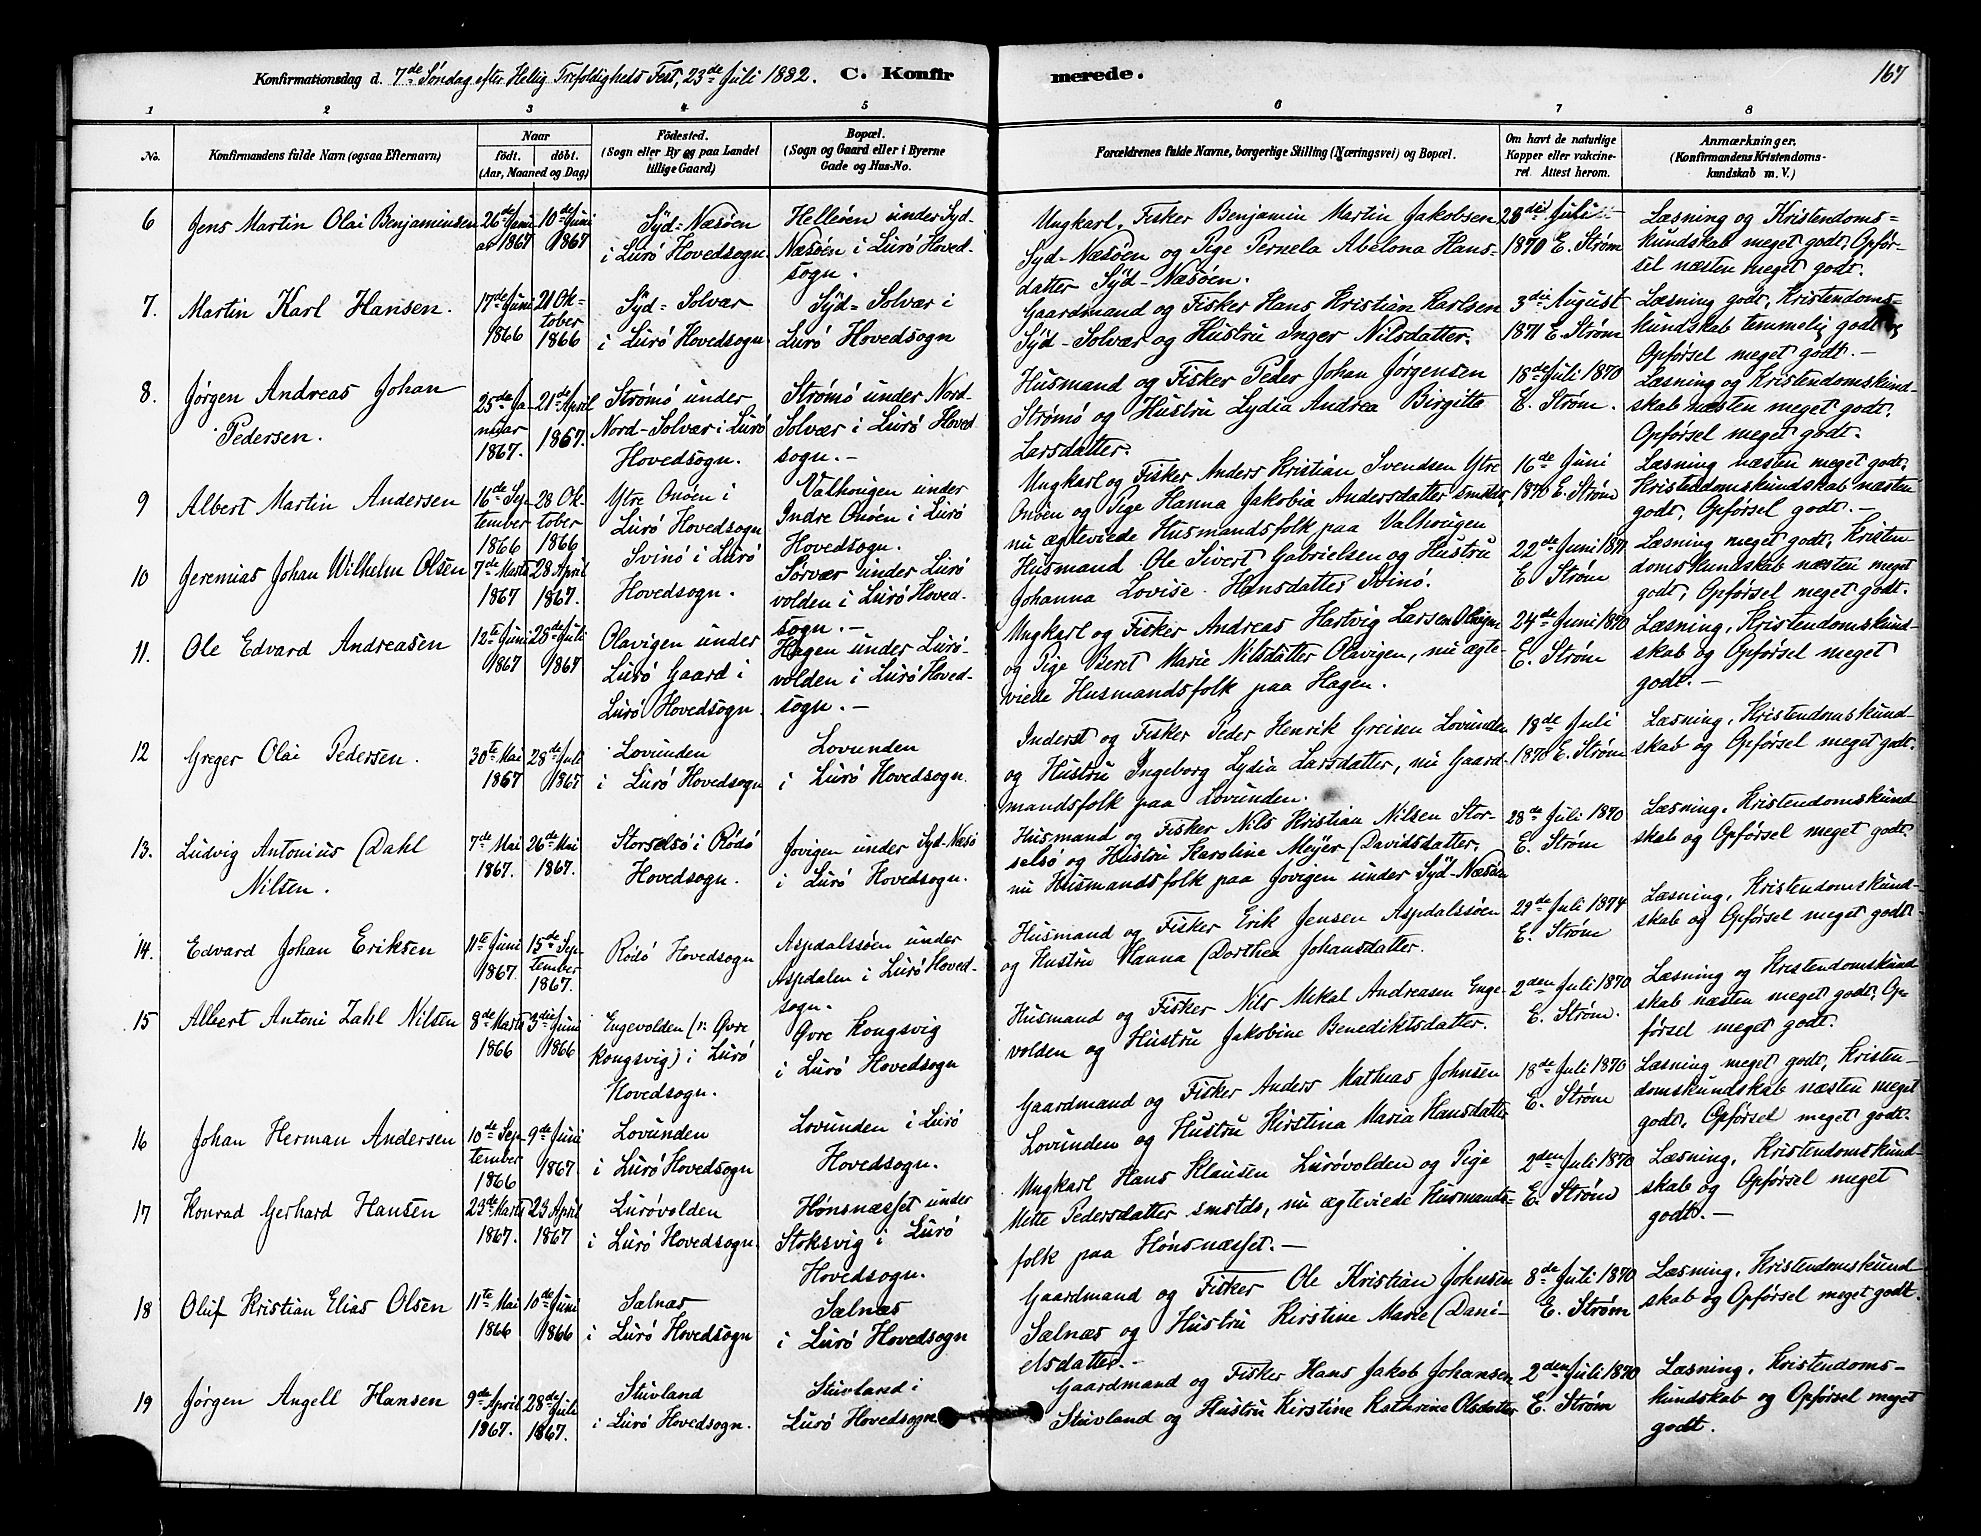 Konfirmationsdag d. 7de Søndag efter Hellig Trefoldigheds Fest, 23de Juli 1882. C. Konfirmerede. 167
1 2 3 4 5 6 7 8
No. Konfirmandens fulde Navn (ogsaa Efternavn)
Naar
født. døbt.
(Aar, Maaned og Dag)
Fødested.
(Sogn eller By og paa Landet
tillige Gaard)
Bopæl.
(Sogn og Gaard eller i Byerne
Gade og Hus-No.
Forældrenes fulde Navne, borgerlige Stilling (Næringsvei) og Bopæl.
Om havt de naturlige
Kopper eller vakcine-
ret. Attest herom.
Anmærkninger.
(Konfirmandens Kristendoms-
kundskab m. V.)
6 Jens Martin Olai Benjaminsen
1867
10de Juni
1867
Syd-Næsøen
i Lurø Hovedsogn.
Helleren under Syd-
Næsøen i Lurø Hoved-
sogn.
Ungkarl, Fisker Benjamin Martin Jakobsen
Syd-Næsøen og Pige Pernela Abelona Hans-
datter Syd-Næsøen.
28de Juli
1870 E. Strøm
Læsning og Kristendoms-
kundskab meget godt, Opfør-
sel næsten meget godt.
7. Martin Karl Hansen.
17de Juni
1866
21 Ok-
tober
1866
Syd-Solvær
i Lurø Hovedsogn
Syd-Solvær i
Lurø Hovedsogn
Gaardmand og Fisker Hans Kristian Karlsen
Syd-Solvær og Hustru Inger Nilsdatter.
3die August
1871 E. Strøm
Læsning godt, Kristendoms-
kundskab temmelig godt og
Opførsel meget godt.-
8. Jørgen Andreas Johan
Pedersen.
25de Ja-
nuar
1867.
21de April
1867.
Strømø under
Nord-Solvær i Lurø
Hovedsogn.
Strømø under Nord-
Solvær i Lurø Hoved
sogn.-
Husmand og Fisker Peder Johan Jørgensen
Strømø og Hustru Lydia Andrea Birgitte
Larsdatter.
18de Juli 1870
E. Strøm.
Læsning og Kristendomskund-
skab næsten meget godt.
Opførsel meget godt.
9 Albert Martin Andersen
16de Sep-
tember
1866
28 Ok-
tober
1866
Ytre Onøen i
Lurø Hovedsogn
Valhougen under
Indre Onøen i Lurø
Hovedsogn.
Ungkarl og Fisker Anders Kristian Svendsen Ytre
Onøen og Pige Hanna Jakobia Andersdatter smstds,
nu ægteviede Husmandsfolk paa Valhougen
16de Juni
1870 E. Strøm
Læsning næsten meget godt,
Kristendomskundskab næsten
godt, Opførsel godt.-
10 Jeremias Johan Wilhelm Olsen
7de Marts
1867
28 April
1867.
Svinø i Lurø
Hovedsogn.
Sørvær under Lurø
volden i Lurø Hoved-
sogn.-
Husmand Ole Sivert Gabrielsen og Hustru
Johanna Lovise Hansdatter Svinø.
22de Juni 1871
E. Strøm
Læsning meget godt, Kristen-
domskundskab næsten meget
godt, Opførsel meget godt.
11. Ole Edvard Andreasen
12te Juni
1867
25de Juli
1867
Olavigen under
Lurø Gaard i
Lurø Hovedsogn.
Hagen under Lurø-
volden i Lurø Hoved-
sogn.-
Ungkarl og Fisker Andreas Hartvig Larsen Olavigen
og Pige Beret Marie Nilsdatter Olavigen, nu ægte-
viede Husmandsfolk paa Hagen.
24de Juni 1870
E. Strøm
Læsning, Kristendomskund-
skab og Opførsel meget
godt.-
12 Greger Olai Pedersen.
30te Mai
1867
28de Juli
1867
Lovunden
i Lurø Hovedsogn
Lovunden
i Lurø Hovedsogn.
Inderst og Fisker Peder Henrik Greisen Lovunden
og Hustru Ingeborg Lydia Larsdatter, nu Gaard-
mandsfolk paa Lovunden.
18de Juli
1870 E. Strøm
Læsning, Kristendomskund-
skab og Opførsel meget godt.
13. Ludvig Antonius Dahl
Nilsen.
7de Mai
1867.
26de Mai
1867.
Storselsø i Rødø
Hovedsogn.
Jovigen under Syd-Næsø
i Lurø Hovedsogn.
Husmand og Fisker Nils Kristian Nilsen Stor-
selsø og Hustru Karoline Meyer Davidsdatter,
nu Husmandsfolk paa Jovigen under Syd-Næsøen
28de Juli 1870
E. Strøm
Læsning, Kristendomskund-
skab og Opførsel meget godt.
14. Edvard Johan Eriksen
11te Juni
1867.
15de Sep-
tember
1867.
Rødø Hovedsogn
Aspdalssøen under
Aspdalen i Lurø Hoved-
sogn.
Husmand og Fisker Erik Jensen Aspdalssøen
og Hustru Hanna Dorthea Johansdatter.
29de Juli 1874
E. Strøm
Læsning, Kristendomskund-
skab og Opførsel meget godt.
15 Albert Antoni Zahl Nilsen
8de Marts
1866
3die Juni
1866
Engevolden (: Øvre
Kongsvig) i Lurø
Hovedsogn.
Øvre Kongsvig
i Lurø Hovedsogn
Husmand og Fisker Nils Mekal Andreasen Enge-
volden og Hustru Jakobine Benediktsdatter.
2den Juli 1870
E. Strøm.
Læsning og Kristendomskund
skab næsten meget godt, Op-
førsel meget godt.
16 Johan Herman Andersen
10de Sep-
tember
1866
9de Juni
1867.
Lovunden
i Lurø Hovedsogn
Lovunden i Lurø
Hovedsogn.
Gaardmand og Fisker Anders Mathias Johnsen
Lovunden og Hustru Kirstina Maria Hansdatter
18de Juli 1870
E. Strøm
Læsning meget godt, Kristen-
domskundskab næsten meget
godt, Opførsel meget godt.
17 Konrad Gerhard Hansen
23de Marts
1867.
23 April
1867
Lurøvolden
i Lurø Hovedsogn.
Hønsnæsset under
Stoksvig i Lurø
Hovedsogn.
Ungkarl Hans Klausen Lurøvolden og Pige
Mette Pedersdatter smstds, nu ægteviede Husmands-
folk paa Hønsnæsset.-
2den Juli 1870
E. Strøm
Læsning, Kristendomskund-
skab og Opførsel meget
godt.-
18 Oluf Kristian Elias Olsen
11te Mai
1866
10de Juni
1866
Sælnæs
i Lurø Hovedsogn
Sælnæs
i Lurø Hovedsogn
Gaardmand og Fisker Ole Kristian Johnsen
Sælnæs og Hustru Kirstine Marie Dani-
elsdatter.-
8de Juli 1870
E. Strøm
Læsning, Kristendomskund
skab og Opførsel meget godt.
19 Jørgen Angell Hansen
9de April
1867.
28de Juli
1867.
Stuvland
i Lurø Hovedsogn.
Stuvland i
Lurø Hovedsogn
Gaardmand og Fisker Hans Jakob Johansen
Stuvland og Hustru Kirstine Kathrine Olsdatter
2den Juli 1870
E. Strøm
Læsning, Kristendoms-
kundskab og Opførsel meget
godt.